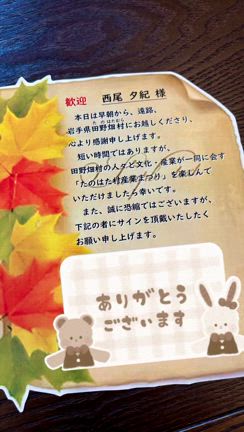 歓迎 西尾 夕紀 様
本日は早朝から、遠路、
岩手県田野畑村にお越しくださり、
心より感謝申し上げます。
短い時間ではありますが、
田野畑村の人々と文化・産業が一同に会す
「たのはた村産業まつり」を楽しんで
いただけましたら幸いです。
また、誠に恐縮ではございますが、
下記の者にサインを頂戴いたしたく
お願い申し上げます。
ありがとう
ございます